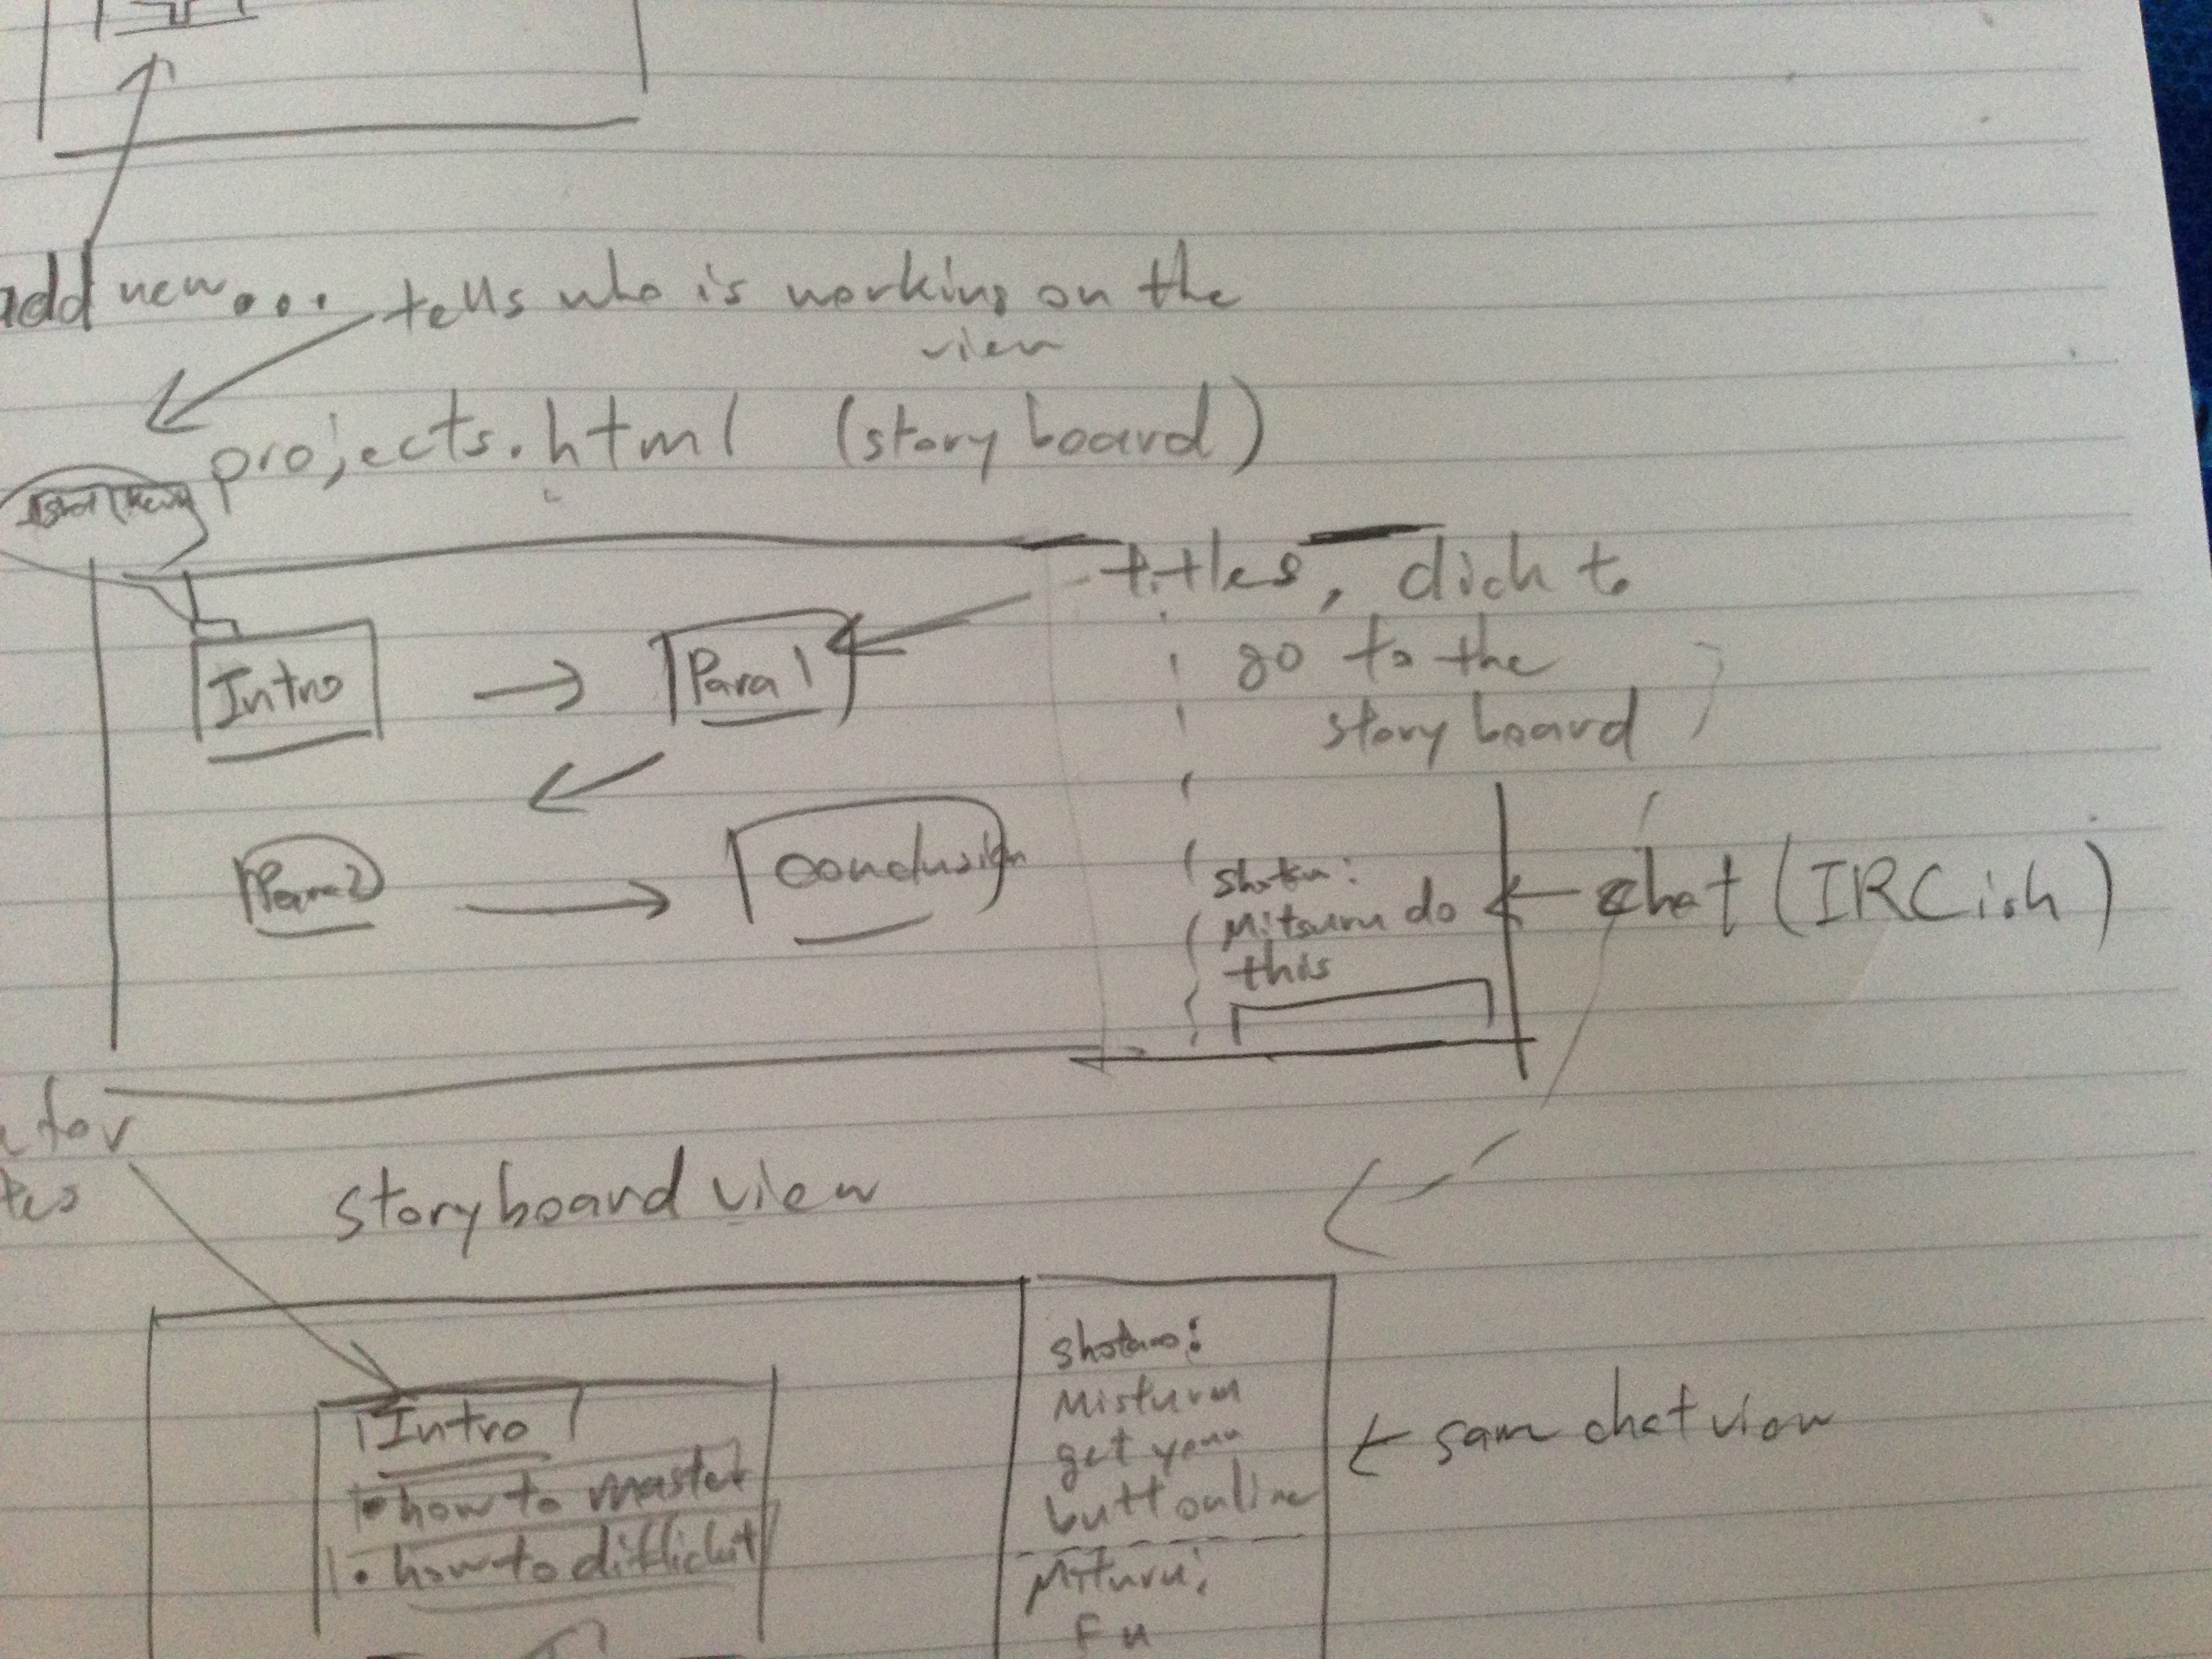 add new...
tells who is working on the
view
projects.html (story board)
titles, click to
go to the
story board
Intro
Para 1
Para 2
Conclusion
Shotaro:
Mitsuru do
this
chat (IRCish)
for
storyboard view
Intro
• how to master
• how to difflicult
shotaro:
Misturu
get your
butt online
Mituru:
F u
sam chat view